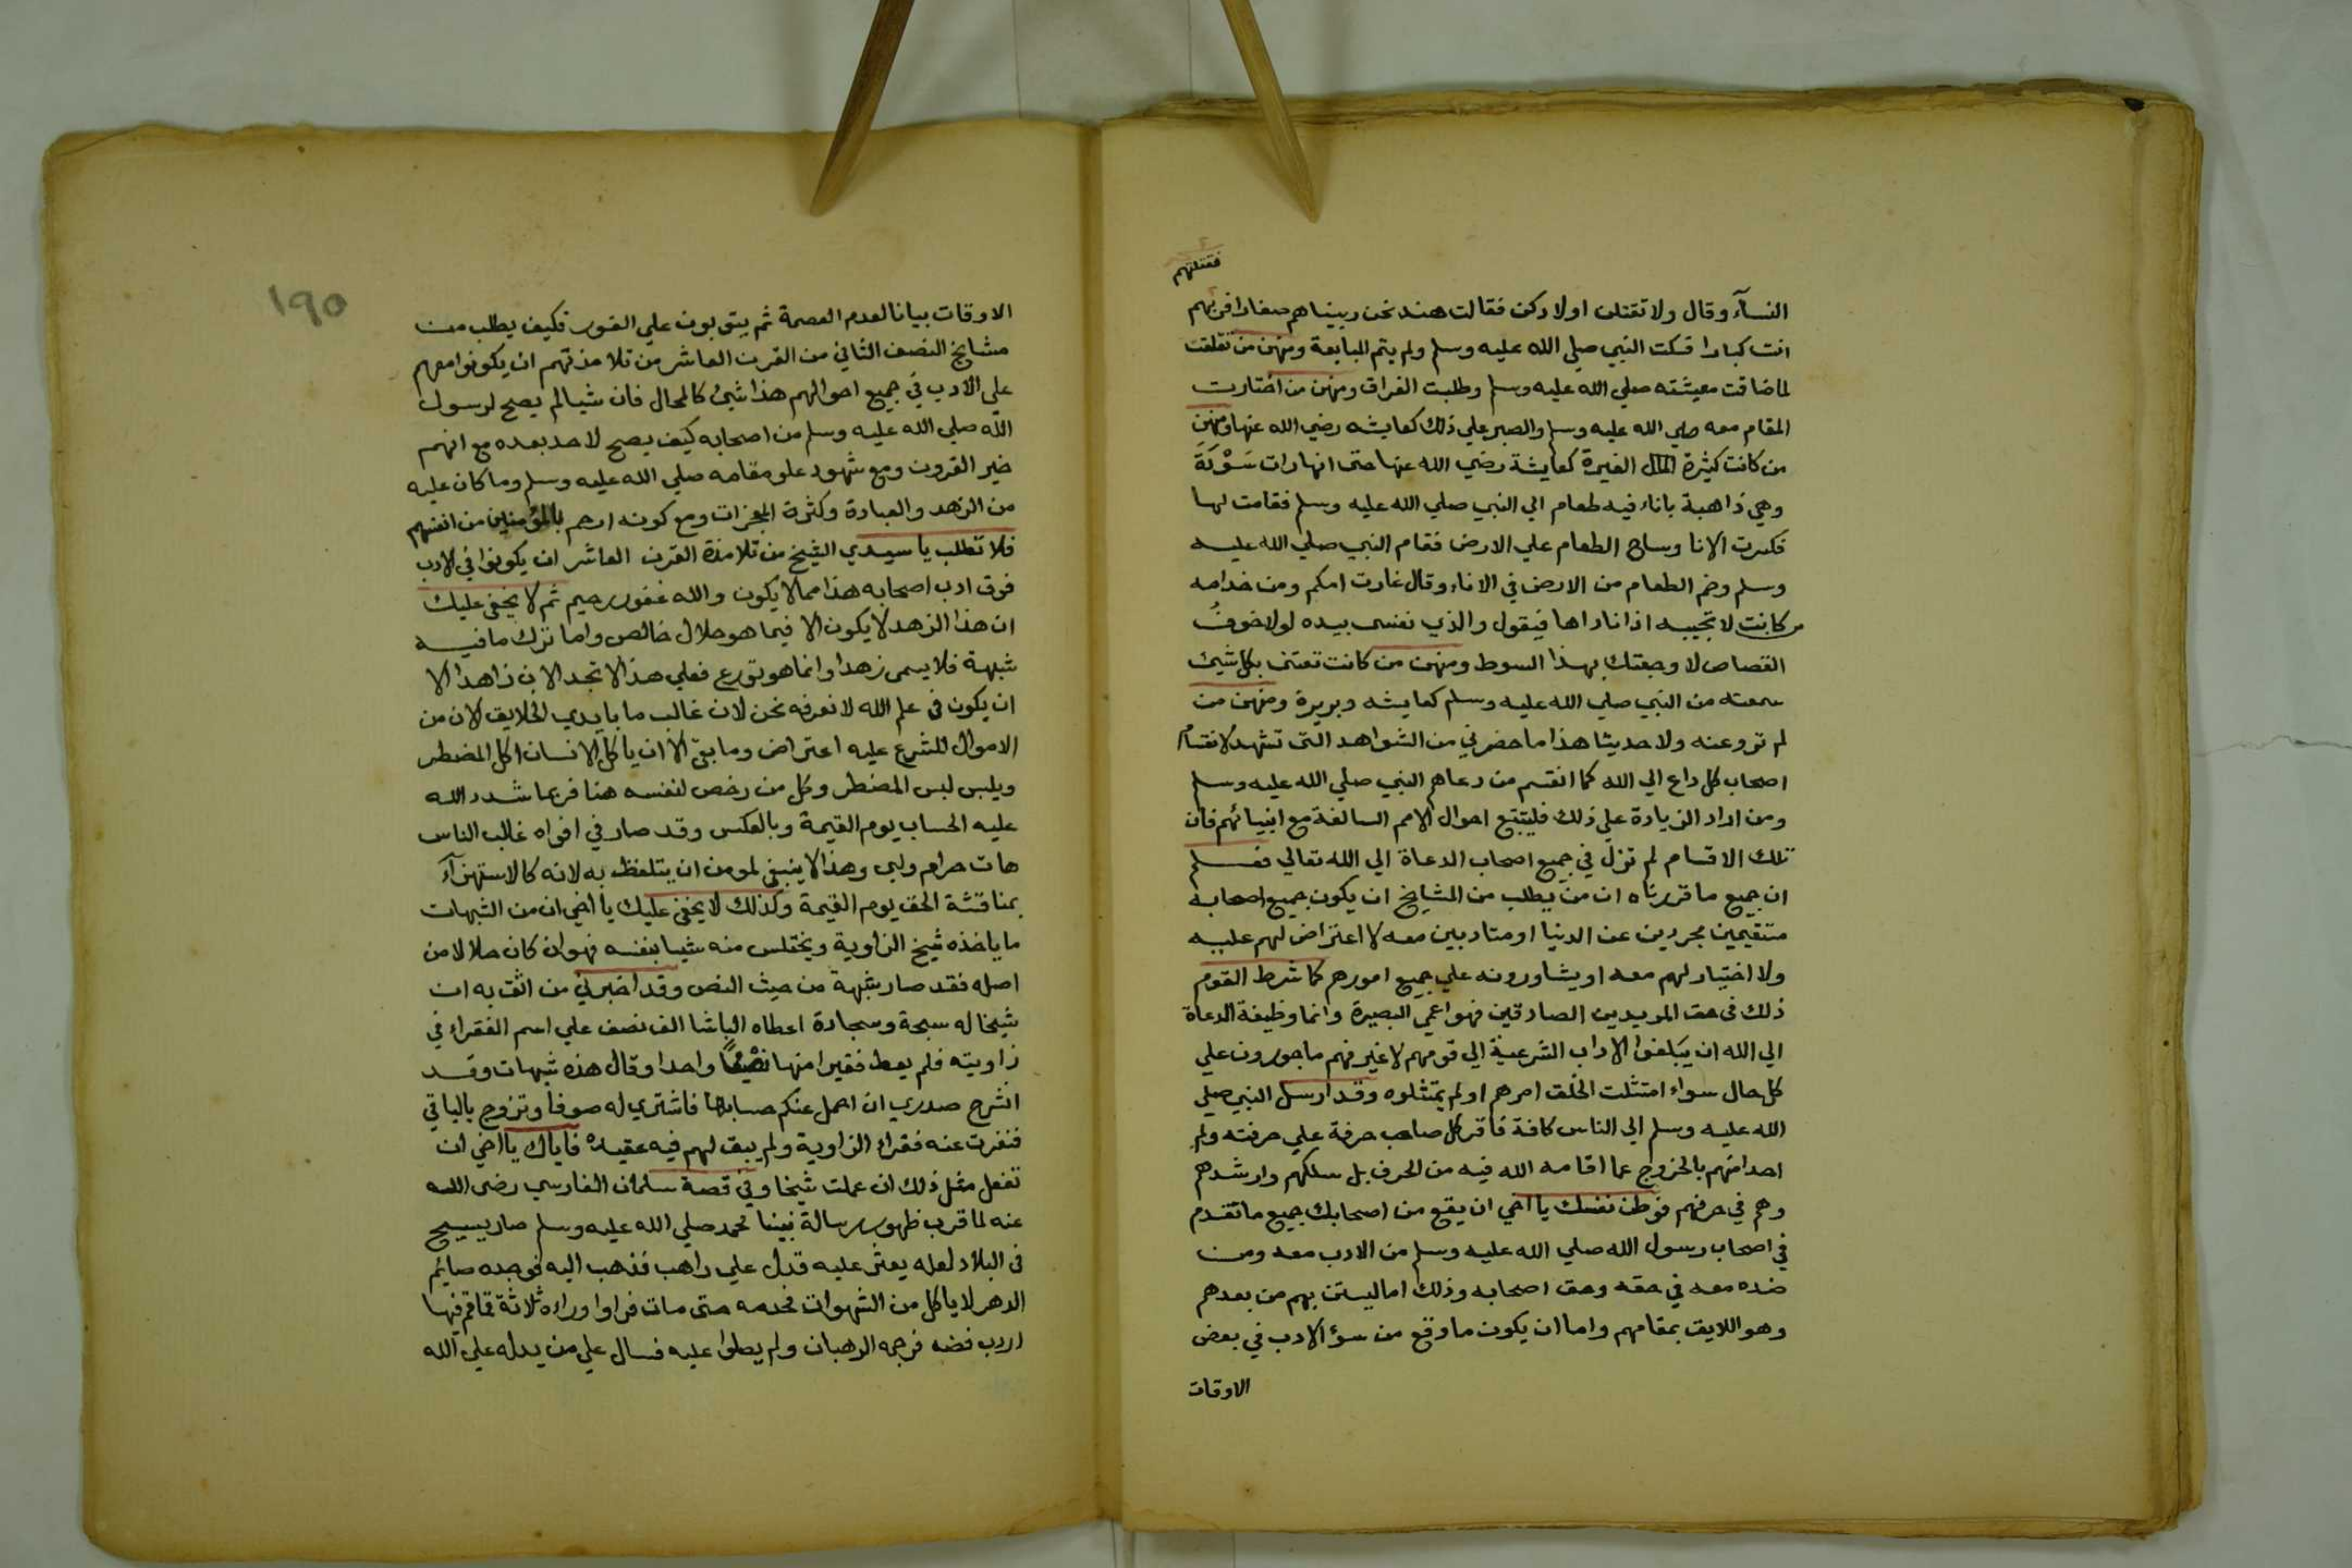 فقتلتهم
النسآء وقال ولا تقتلن اولادكن فقالت هند نحن ربيناهم صغارا
انت كبارا فسكت النبي صلي الله عليه وسلم ولم يتم المبايعة ومنهن من تقلقت
لما ضاقت معيشته صلي الله عليه وسلم وطلبت الفراق ومنهن من اختارت
المقام معه صلي الله عليه وسلم والصبر علي ذلك كعايشه رضي الله عنها ومنهن
من كانت كثيرة الغيرة كعايشة رضي الله عنها حتى انها رات سَوْدَة
وهي ذاهبة باناء فيه طعام الي النبي صلي الله عليه وسلم فقامت لها
فكسرت الانا وساح الطعام علي الارض فقام النبي صلي الله عليه
وسلم وضم الطعام من الارض في الاناء وقال غارت امكم ومن خدامه
من كانت لا تجيبه اذا ناداها فيقول والذي نفسى بيده لولا خوفُ
القصاص لاوجعتك بهذا السوط ومنهن من كانت تعتنى بكل شيئ
سمعته من النبي صلي الله عليه وسلم كعايشه وبريرة ومنهن من
لم تروعنه ولا حديثا هذا ما حضرني من الشواهد التى تشهد لانقسام
اصحاب كل داع الي الله كما انقسم من دعاهم النبي صلي الله عليه وسلم
ومن اراد الزيادة علي ذلك فليتتبع احوال الامم السالفة مع انبيائهم فان
تلك الاقسام لم تزل في جميع اصحاب الدعاة الي الله تعالي فعلم
ان جميع ما قررناه ان من يطلب من المشايخ ان يكون جميع اصحابه
مستقيمين مجردين عن الدنيا او متادبين معه لا اعتراض لهم عليه
ولا اختيار لهم معه او يشاورونه علي جميع امورهم كما شرط القوم
ذلك فى حق المريدين الصادقين فهو اعمي البصيرة وانما وظيفة الدعاة
الي الله ان يبلغوا الاداب الشرعية الي قومهم لا غير فهم ماجورون علي
كل حال سواء امتثلت الخلق امرهم او لم يمتثلوه وقد ارسل النبي صلي
الله عليه وسلم الي الناس كافة فاقر كل صاحب حرفة علي حرفته ولم
احدا منهم بالخروج عما اقامه الله فيه من الحرف بل سلكهم وارشدهم
وهم في حرفهم فوطن نفسك يا اخي ان يقع من اصحابك جميع ما تقدم
في اصحاب رسول الله صلي الله عليه وسلم من الادب معه ومن
ضده معه في حقه وحق اصحابه وذلك اما ليستن بهم من بعدهم
وهو اللايق بمقامهم واما ان يكون ما وقع من سؤ الادب في بعض
الاوقات
١٩٥
الاوقات بيانا لعدم العصمة ثم يتوبون علي الفور فكيف يطلب من
مشايخ النصف الثاني من القرن العاشر من تلامذتهم ان يكونوا معهم
علي الادب في جميع احوالهم هذا شيئ كالمحال فان شيا لم يصح لرسول
الله صلي الله عليه وسلم من اصحابه كيف يصح لاحد بعده مع انهم
خير القرون ومع شهود علو مقامه صلي الله عليه وسلم وما كان عليه
من الزهد والعبادة وكثرة المعجزات ومع كونه ارحم بالمؤمنين من انفسهم
فلا تطلب يا سيدي الشيخ من تلامذة القرن العاشر ان يكونوا في الادب
فوق ادب اصحابه هذا مما لا يكون والله غفور رحيم ثم لا يخفي عليك
ان هذا الزهد لا يكون الا فيما هو حلال خالص واما ترك ما فيه
شبهة فلا يسمى زهدا وانما هو تورع فعلي هذا لا تجد الان زاهدا الا
ان يكون فى علم الله لا نعرفه نحن لان غالب ما بايدي الخلايق الان من
الاموال للشرع عليه اعتراض وما بقي الا ان ياكل الانسان اكل المضطر
ويلبس لبس المضطر وكل من رخص لنفسه هنا فربما شدد الله
عليه الحساب يوم القيمة وبالعكس وقد صار في افواه غالب الناس
هات حرام ولبي وهذا لا ينبغي لمومن ان يتلفظ به لانه كالاستهزآء
بمناقشة الحق يوم القيمة وكذلك لا يخفى عليك يا اخي ان من الشبهات
ما ياخذه شيخ الزاوية ويختلس منه شيا بنفسه فهو ان كان حلالا من
اصله فقد صار شبهة من حيث النص وقد اخبرني من اثق به ان
شيخا له سبحة وسجادة اعطاه الباشا الف نصف علي اسم الفقراء في
زاويته فلم يعط فقيرا منها نصفا واحدا وقال هذه شبهات وقد
انشرح صدري ان احمل عنكم حسابها فاشتري له صوفا وتزوج بالباقي
فنفرت عنه فقراء الزاوية ولم يبق لهم فيه عقيده فاياك يا اخي ان
تفعل مثل ذلك ان عملت شيخا وفي قصة سلمان الفارسي رضى الله
عنه لما قرب ظهور رسالة نبينا محمد صلي الله عليه وسلم صار يسيح
فى البلاد لعله يعثر عليه فدل علي راهب فذهب اليه فوجده صايم
الدهر لا ياكل من الشهوات فخدمه حتى مات فراوا وراءه ثلاثة قماقم فيها
اردب فضه فرجمه الرهبان ولم يصلوا عليه فسال علي من يدله علي الله